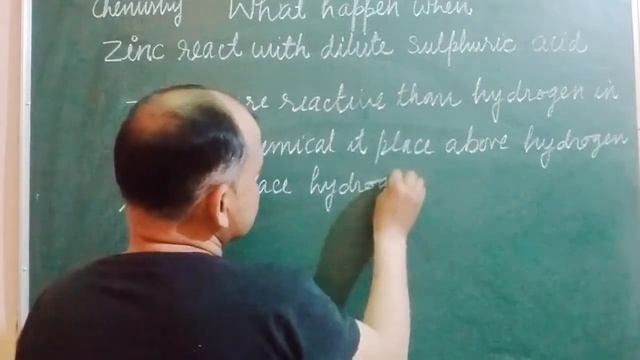 Chemistry What happen when
Zinc react with dilute sulphuric acid
re reactive than hydrogen in
emical it place above hydrogen
lace hydrog